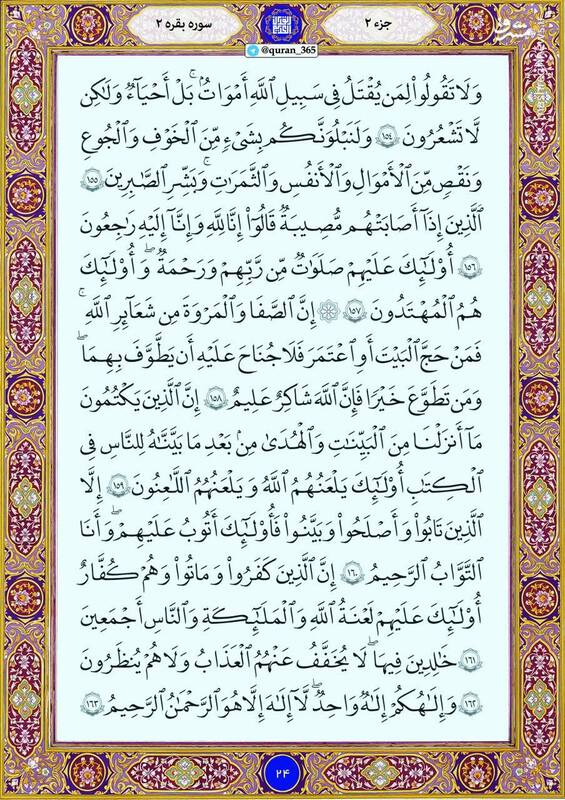 جزء ۲
سوره بقره ۲
@quran_365
وَلَا تَقُولُوا۟ لِمَن يُقْتَلُ فِى سَبِيلِ ٱللَّهِ أَمْوَٰتٌۢ ۚ بَلْ أَحْيَآءٌ وَلَٰكِن
لَّا تَشْعُرُونَ ١٥٤ وَلَنَبْلُوَنَّكُم بِشَىْءٍ مِّنَ ٱلْخَوْفِ وَٱلْجُوعِ
وَنَقْصٍ مِّنَ ٱلْأَمْوَٰلِ وَٱلْأَنفُسِ وَٱلثَّمَرَٰتِ ۗ وَبَشِّرِ ٱلصَّٰبِرِينَ ١٥٥
ٱلَّذِينَ إِذَآ أَصَٰبَتْهُم مُّصِيبَةٌ قَالُوٓا۟ إِنَّا لِلَّهِ وَإِنَّآ إِلَيْهِ رَٰجِعُونَ
١٥٦ أُو۟لَٰٓئِكَ عَلَيْهِمْ صَلَوَٰتٌ مِّن رَّبِّهِمْ وَرَحْمَةٌ ۖ وَأُو۟لَٰٓئِكَ
هُمُ ٱلْمُهْتَدُونَ ١٥٧ ۞ إِنَّ ٱلصَّفَا وَٱلْمَرْوَةَ مِن شَعَآئِرِ ٱللَّهِ ۖ
فَمَنْ حَجَّ ٱلْبَيْتَ أَوِ ٱعْتَمَرَ فَلَا جُنَاحَ عَلَيْهِ أَن يَطَّوَّفَ بِهِمَا ۚ
وَمَن تَطَوَّعَ خَيْرًا فَإِنَّ ٱللَّهَ شَاكِرٌ عَلِيمٌ ١٥٨ إِنَّ ٱلَّذِينَ يَكْتُمُونَ
مَآ أَنزَلْنَا مِنَ ٱلْبَيِّنَٰتِ وَٱلْهُدَىٰ مِنۢ بَعْدِ مَا بَيَّنَّٰهُ لِلنَّاسِ فِى
ٱلْكِتَٰبِ أُو۟لَٰٓئِكَ يَلْعَنُهُمُ ٱللَّهُ وَيَلْعَنُهُمُ ٱللَّٰعِنُونَ ١٥٩ إِلَّا
ٱلَّذِينَ تَابُوا۟ وَأَصْلَحُوا۟ وَبَيَّنُوا۟ فَأُو۟لَٰٓئِكَ أَتُوبُ عَلَيْهِمْ ۚ وَأَنَا
ٱلتَّوَّابُ ٱلرَّحِيمُ ١٦٠ إِنَّ ٱلَّذِينَ كَفَرُوا۟ وَمَاتُوا۟ وَهُمْ كُفَّارٌ
أُو۟لَٰٓئِكَ عَلَيْهِمْ لَعْنَةُ ٱللَّهِ وَٱلْمَلَٰٓئِكَةِ وَٱلنَّاسِ أَجْمَعِينَ
١٦١ خَٰلِدِينَ فِيهَا ۖ لَا يُخَفَّفُ عَنْهُمُ ٱلْعَذَابُ وَلَا هُمْ يُنظَرُونَ
١٦٢ وَإِلَٰهُكُمْ إِلَٰهٌ وَٰحِدٌ ۖ لَّآ إِلَٰهَ إِلَّا هُوَ ٱلرَّحْمَٰنُ ٱلرَّحِيمُ ١٦٣
۲۴